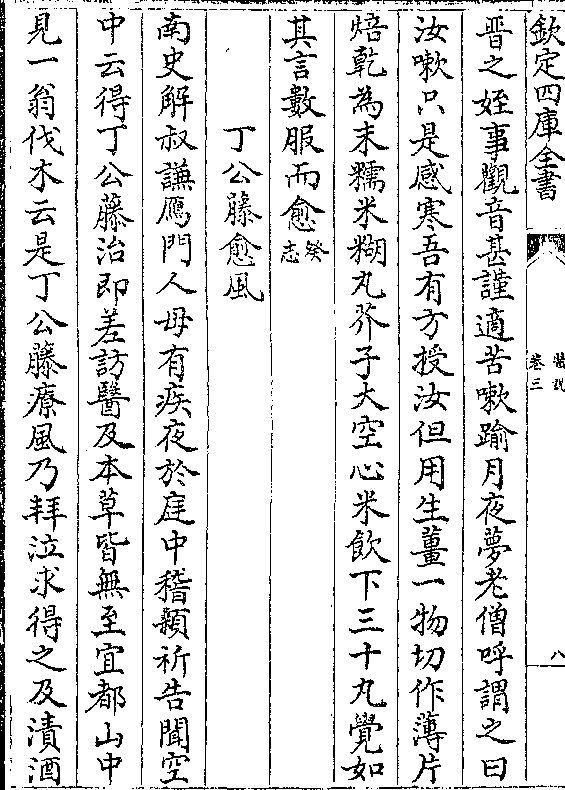 欽定四庫全書
醫説
卷三
八
晋之姪事觀音甚謹適苦嗽踰月夜夢老僧呼謂之曰
汝嗽只是感寒吾有方授汝但用生薑一物切作薄片
焙乾為末糯米糊丸芥子大空心米飲下三十丸覺如
其言數服而愈癸志
丁公藤愈風
南史解叔謙鴈門人母有疾夜於庭中稽顙祈告聞空
中云得丁公藤治即差訪醫及本草皆無至宜都山中
見一翁伐木云是丁公藤療風乃拜泣求得之及漬酒